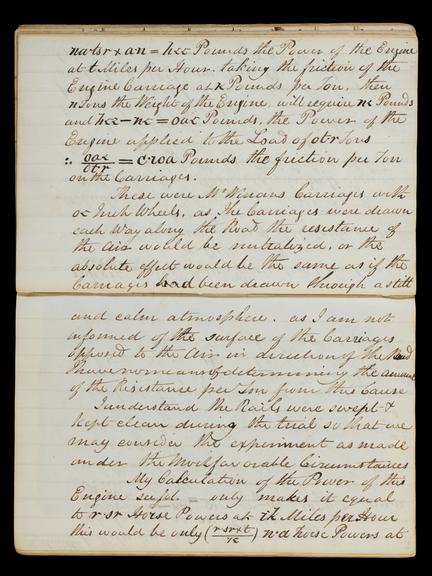 na.lsr x an = hcc Pounds the Power of the Engine
at t Miles per Hour. taking the friction of the
Engine Carriage at k Pounds per Ton, then
n Tons the Weight of the Engine, will require nc Pounds
and hcc - nc = oac Pounds, the Power of the
Engine applied to the Load of otr Tons
∴ oac/otr = croa Pounds the friction per Ton
on the Carriages.
These were Mr Winans Carriages with
oc Inch Wheels, as The Carriages were drawn
each Way along the Road the resistance of
the Air would be neutralized, or the
absolute effect would be the same as if the
Carriages had been drawn through a still
and calm atmosphere. as I am not
informed of the surface of the Carriages
opposed to the Air in direction of the Road
I have no means of determining the amount
of the Resistance per Ton from this Cause
I understand the Rails were swept &
kept clean during the trial so that we
may consider the experiment as made
under the Most favorable Circumstances
My Calculation of the Power of this
Engine only makes it equal
to r.sr Horse Powers at Miles per Hour
this would be only (r sr x t / ) Horse Powers at